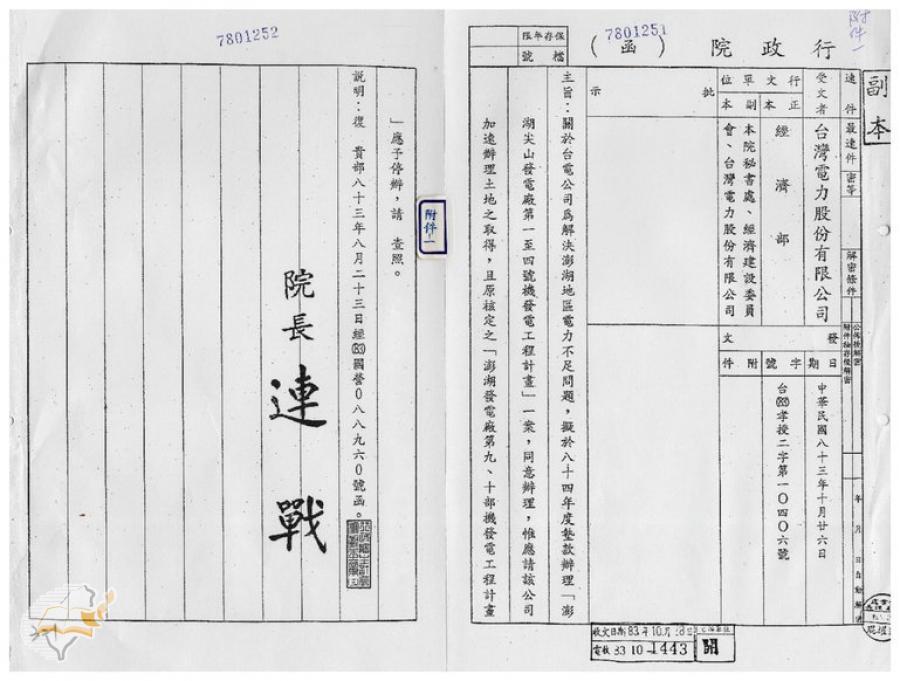 附件一
副本
行政院
(函)
7801251
保存年限
檔號
速件
最速件
密等
解密條件
公佈後解密
附件抽存後解密
年 月 日自動解密
受文者
台灣電力股份有限公司
行文單位
正本
經濟部
副本
本院秘書處、經濟建設委員
會、台灣電力股份有限公司
發文
日期
中華民國八十三年十月廿六日
字號
台(83)孝授二字第一〇四〇六號
附件
批示
主旨：關於台電公司為解決澎湖地區電力不足問題，擬於八十四年度墊款辦理「澎
湖尖山發電廠第一至四號機發電工程計畫」一案，同意辦理，惟應請該公司
加速辦理土地之取得，且原核定之「澎湖發電廠第九、十部機發電工程計畫
收文日期 83年10月28日
電收 83 10-1443
附件一
7801252
」應予停辦，請 查照。
說明：復 貴部八十三年八月二十三日經(83)國營〇八八九六〇號函。
院長 連戰